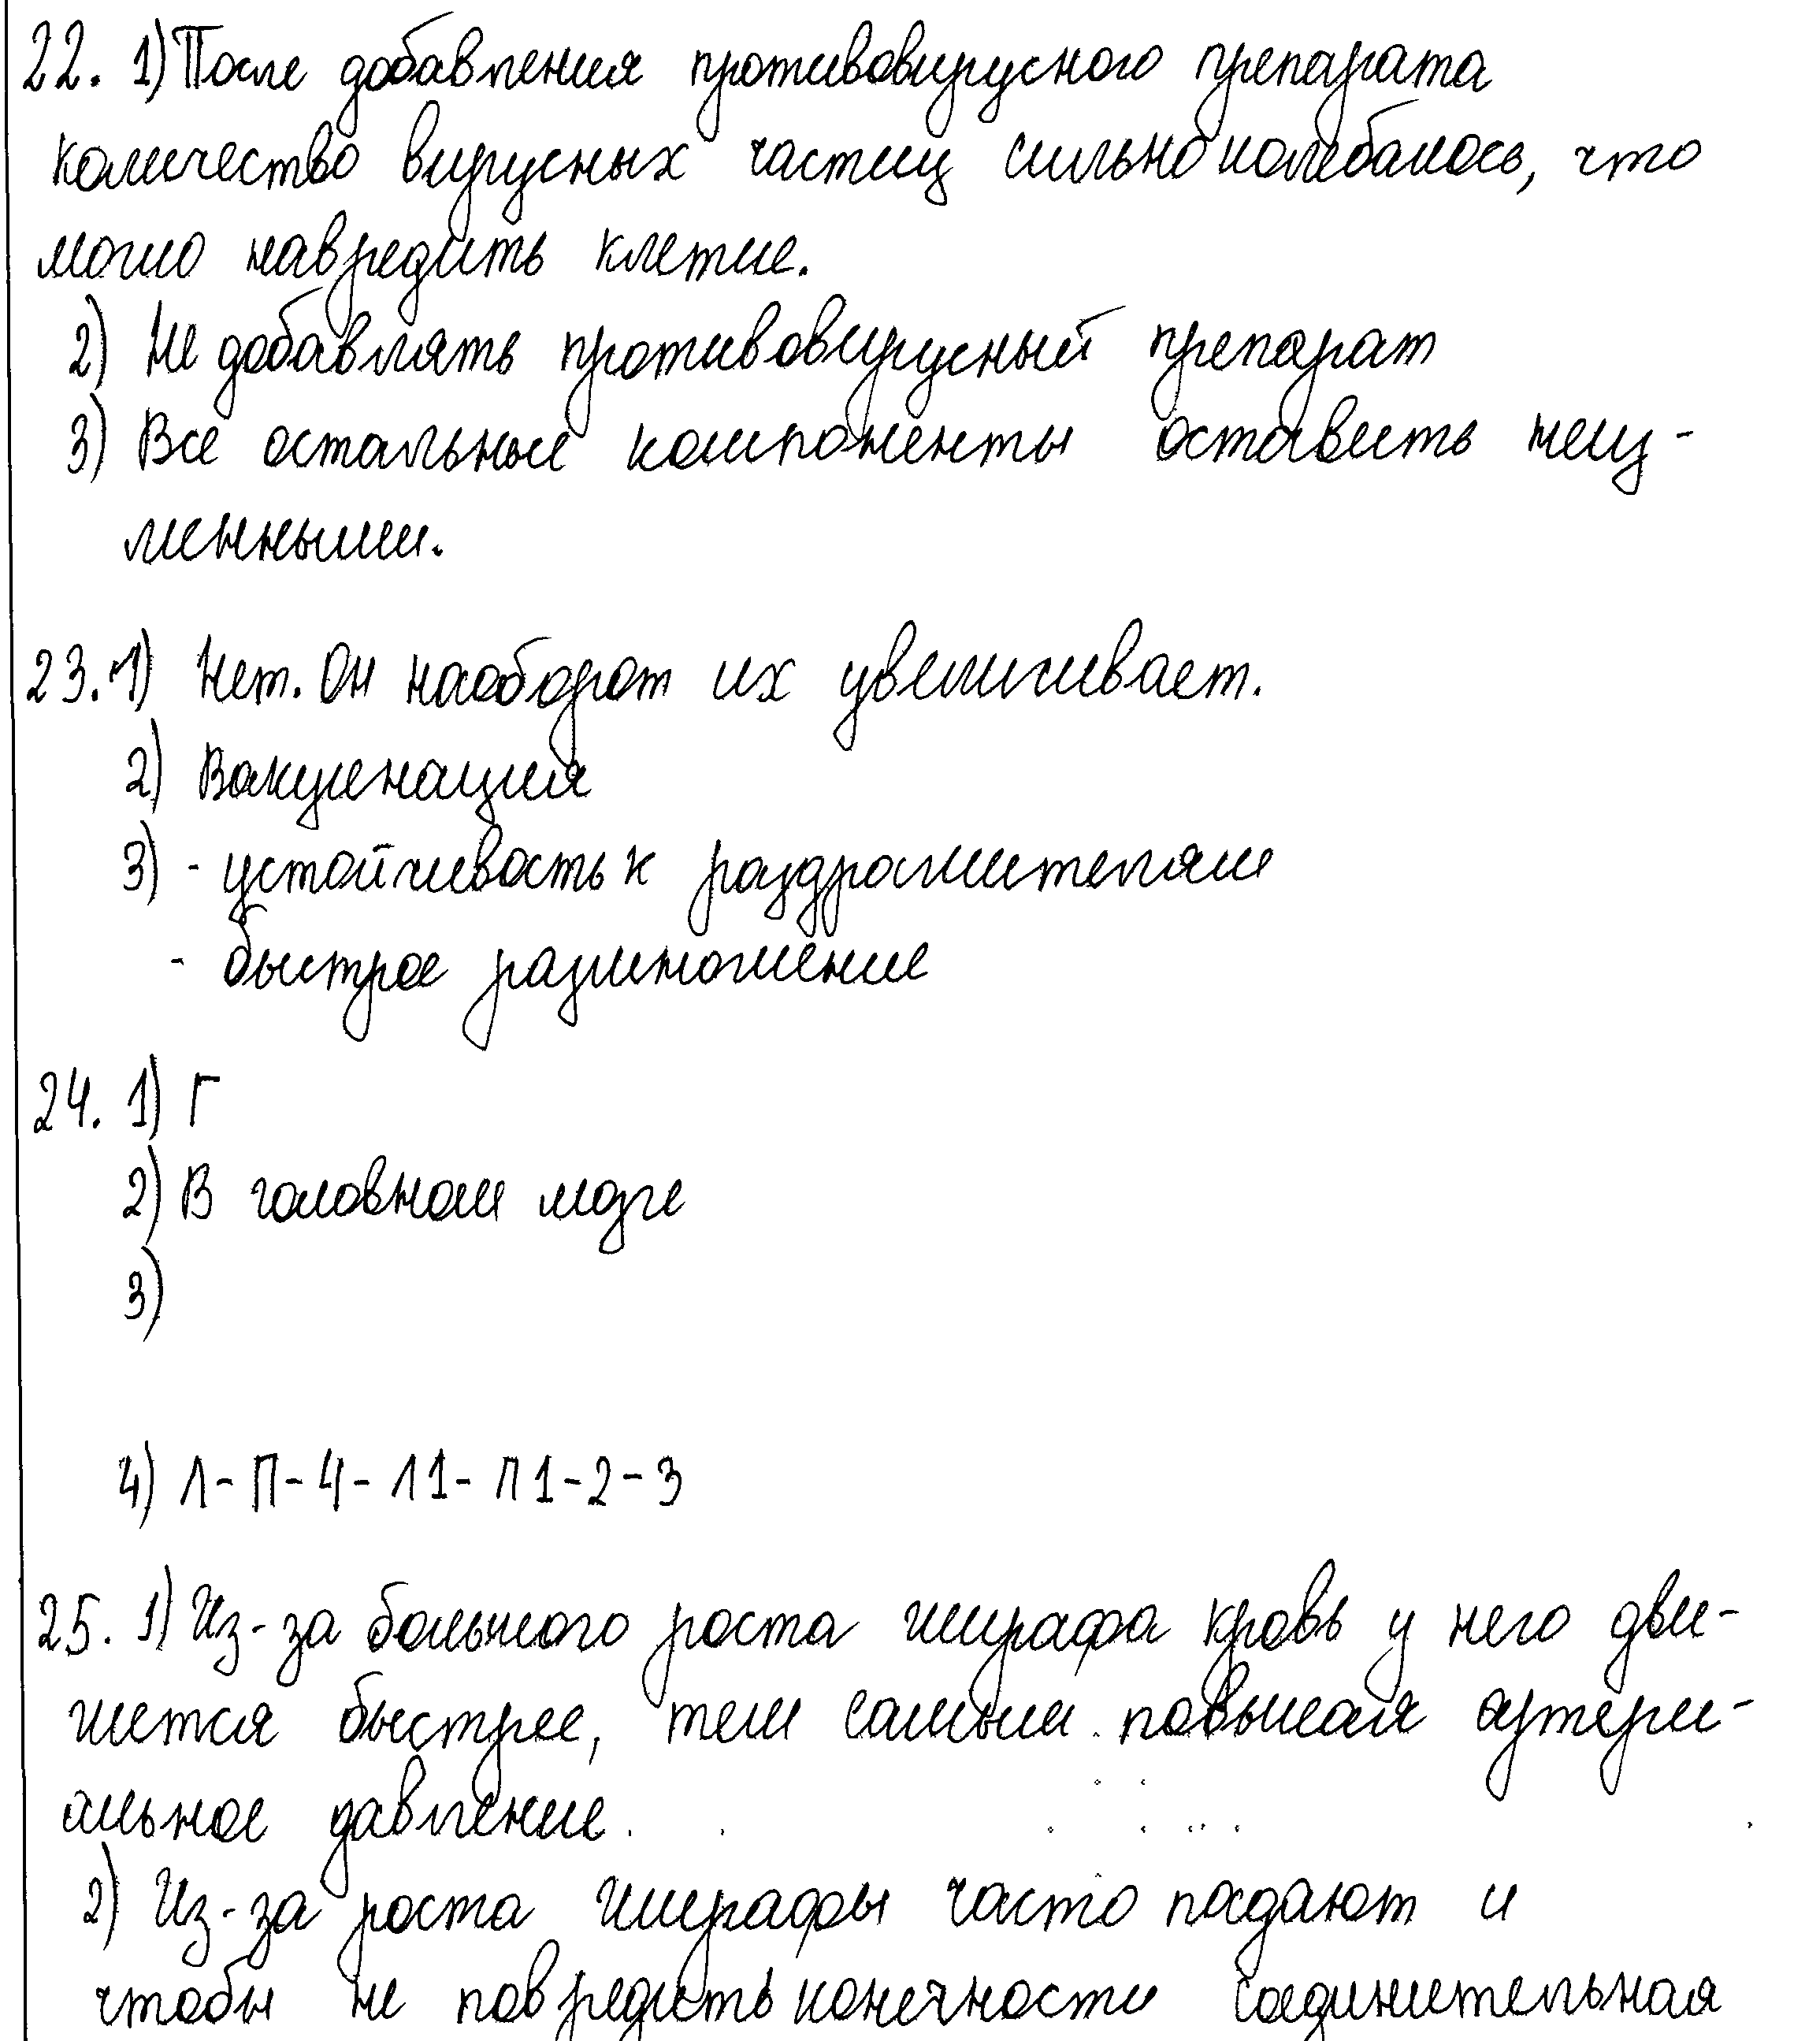 22. 1) После добавления противовирусного препарата
количество вирусных частиц сильно колебалось, что
могло навредить клетке.
2) Не добавлять противовирусный препарат
3) Все остальные компоненты оставить неиз-
менными.
23. 1) Нет. Он наоборот их увеличивает.
2) Вакцинация
3) - устойчивость к раздражителям
- быстрое размножение
24. 1) Г
2) В головном мозге
3)
4) Л - П - 4 - Л1 - П1 - 2 - 3
25. 1) Из-за большого роста жирафа кровь у него дви-
жется быстрее, тем самым повышая артери-
альное давление.
2) Из-за роста жирафы часто падают и
чтобы не повредить конечности соединительная